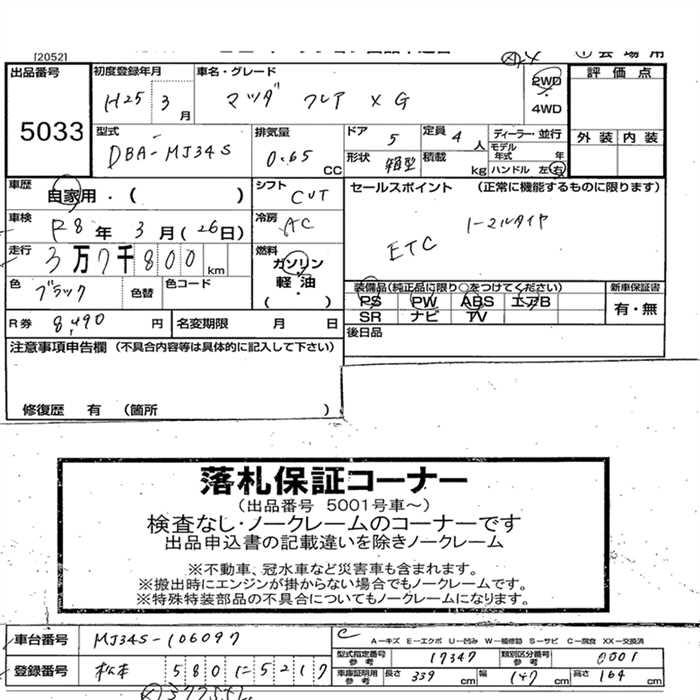 [2052]
出品番号 5033
初度登録年月 H25 3月
車名・グレード マツダ フレア XG
2WD
4WD
評価点
外装 内装
型式 DBA-MJ34S
排気量 0.65 CC
ドア 5
定員 4人
形状 箱型
積載 kg
ディーラー・並行
モデル年式 年
ハンドル 左 右
車歴 自家用・( )
シフト CVT
セールスポイント (正常に機能するものに限ります)
ETC ノーマルタイヤ
車検 R8年 3月(26日)
冷房 AC
走行 3万7千800km
燃料 ガソリン
軽油
( ・ )
色 ブラック 色替 色コード
装備品(純正品に限り○をつけてください)
PS PW ABS エアB
SR ナビ TV
新車保証書
有・無
R券 8,490円
名変期限 月 日
後日品
注意事項申告欄 (不具合内容等は具体的に記入して下さい)
修復歴 有 (箇所 )
落札保証コーナー
(出品番号 5001号車〜)
検査なし・ノークレームのコーナーです
出品申込書の記載違いを除きノークレーム
※不動車、冠水車など災害車も含まれます。
※搬出時にエンジンが掛からない場合でもノークレームです。
※特殊特装部品の不具合についてもノークレームになります。
車台番号 MJ34S-106097
A-キズ E-エクボ U-凹み W-補修跡 S-サビ C-腐食 XX-交換済
登録番号 松本 580 に 5217
型式指定番号 参考 17347
類別区分番号 参考 0001
車庫証明用 参考 長さ 339cm 幅 147cm 高さ 164cm